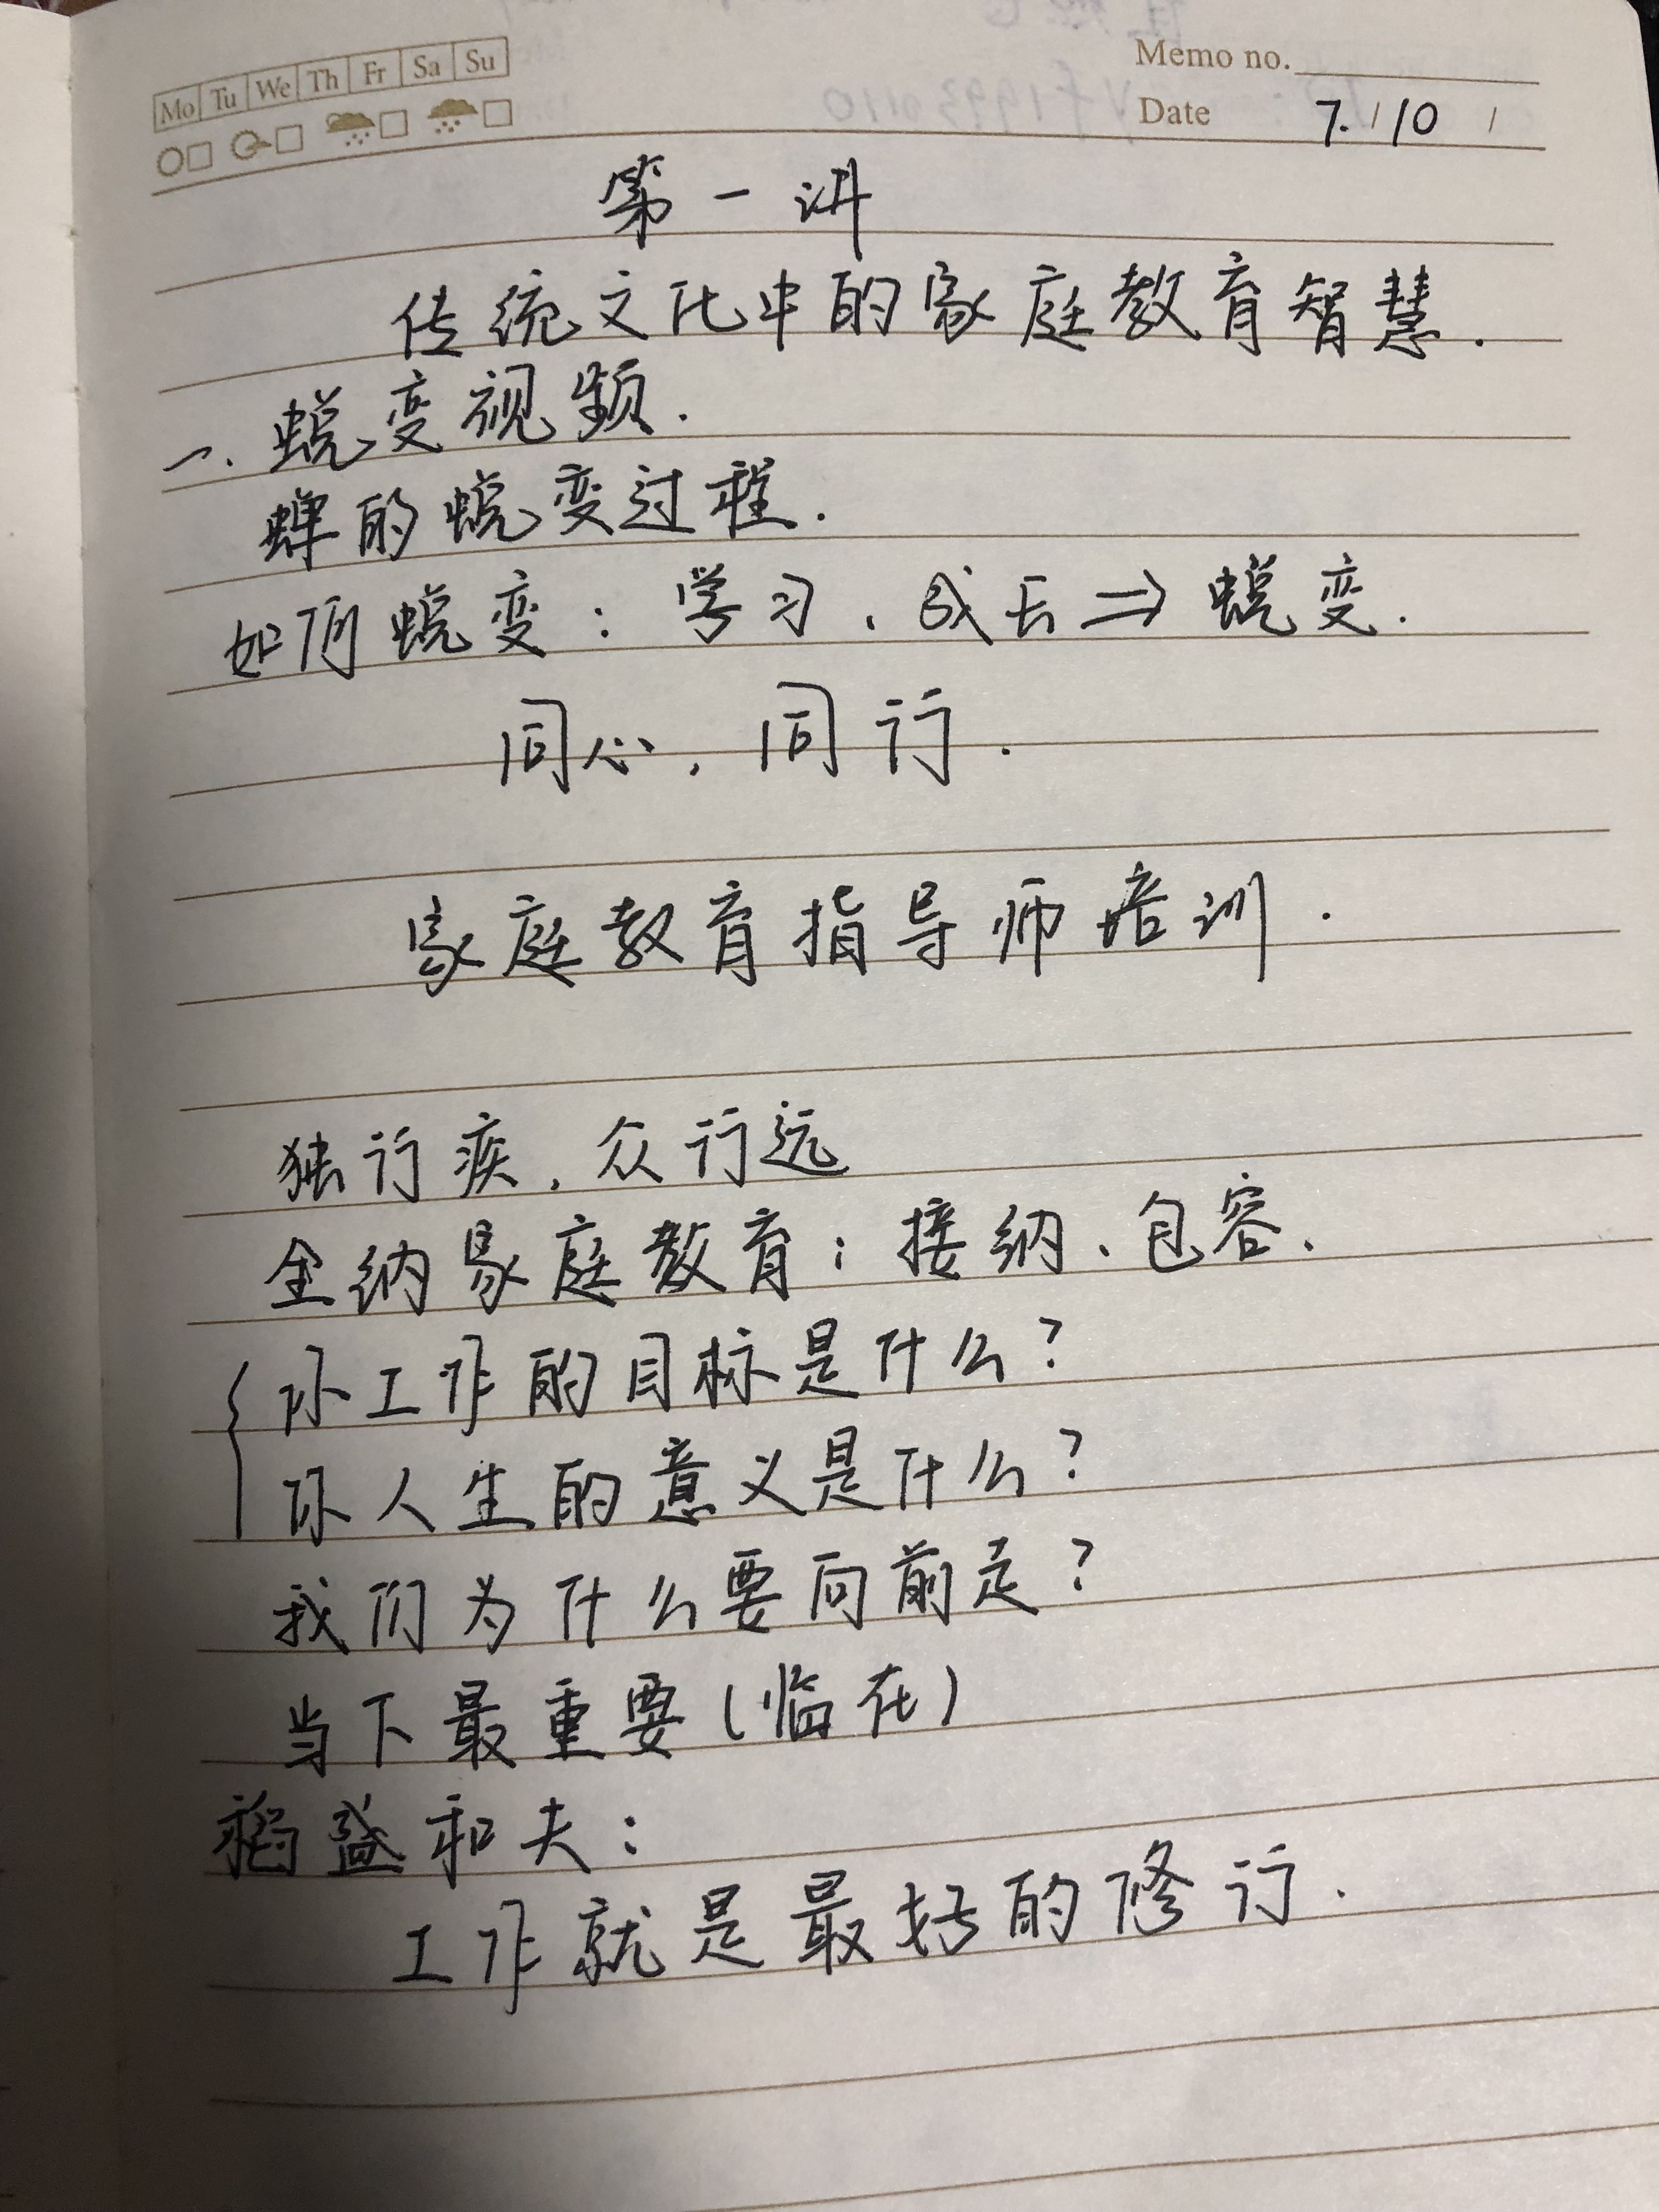 Mo Tu We Th Fr Sa Su
Memo no.
Date 7. / 10 /
第一讲
传统文化中的家庭教育智慧.
一、蜕变视频.
蝉的蜕变过程.
如何蜕变：学习、成长⇒蜕变.
同心，同行.
家庭教育指导师培训.
独行疾，众行远
全纳家庭教育：接纳、包容、
你工作的目标是什么？
你人生的意义是什么？
我们为什么要向前走？
当下最重要(临在)
稻盛和夫：
工作就是最好的修行.